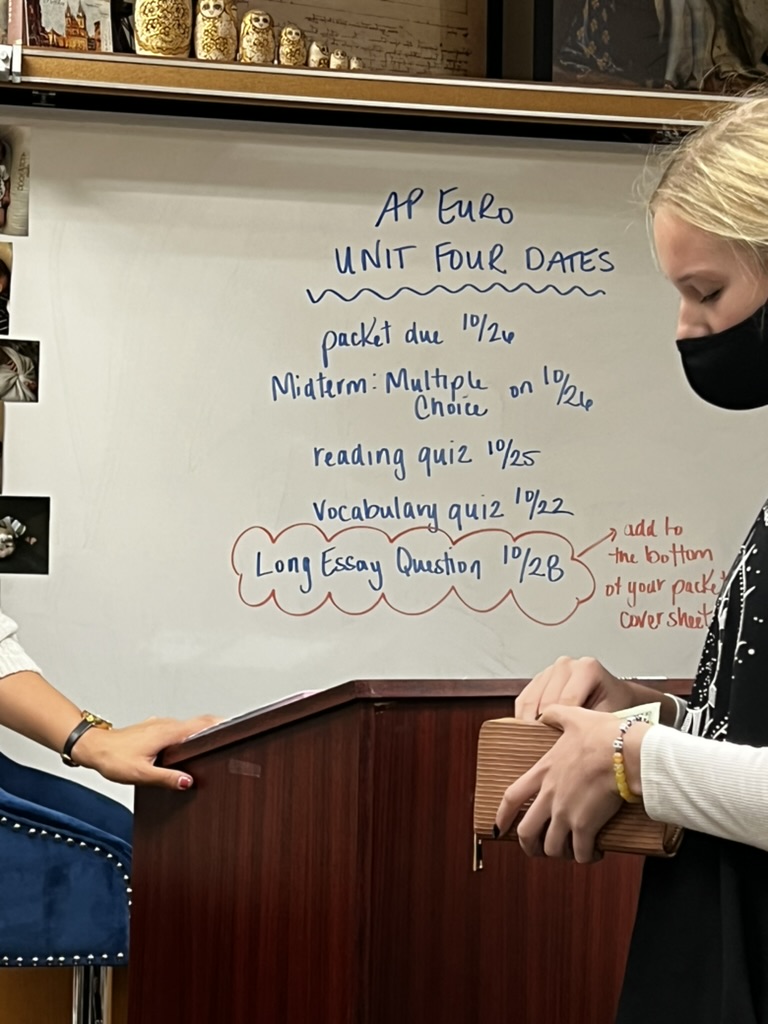 AP EURO
UNIT FOUR DATES
packet due 10/26
Midterm: Multiple Choice on 10/26
reading quiz 10/25
vocabulary quiz 10/22
Long Essay Question 10/28
add to
the bottom
of your packet
cover sheet